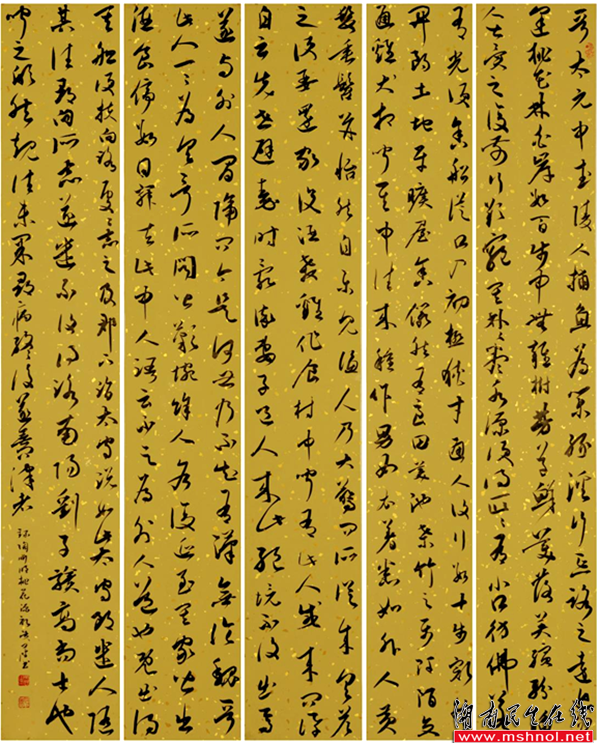 晉太元中武陵人捕魚為業緣溪行忘路之遠
逢桃花林夾岸數百步中無雜樹芳草鮮美落英繽紛
人甚異之復前行欲窮其林林盡水源便得一山山有小口仿佛若
有光便舍船從口入初極狹才通人復行數十步豁
開朗土地平曠屋舍儼然有良田美池桑竹之屬阡陌交
通雞犬相聞其中往來種作男女衣著悉如外人黃
髮垂髫並怡然自樂見漁人乃大驚問所從來具答
之便要還家設酒殺雞作食村中聞有此人咸來問訊
自云先世避秦時亂率妻子邑人來此絕境不復出焉
遂與外人間隔問今是何世乃不知有漢無論魏晉
此人一一為具言所聞皆歎惋餘人各復延至其家皆出
酒食停數日辭去此中人語云不足為外人道也既出得
其船便扶向路處處志之及郡下詣太守說如此太守即遣人隨
其往尋向所志遂迷不復得路南陽劉子驥高尚士也
聞之欣然規往未果尋病終後遂無問津者
陶淵明桃花源記
濟南民生在线
www.mshnol.net